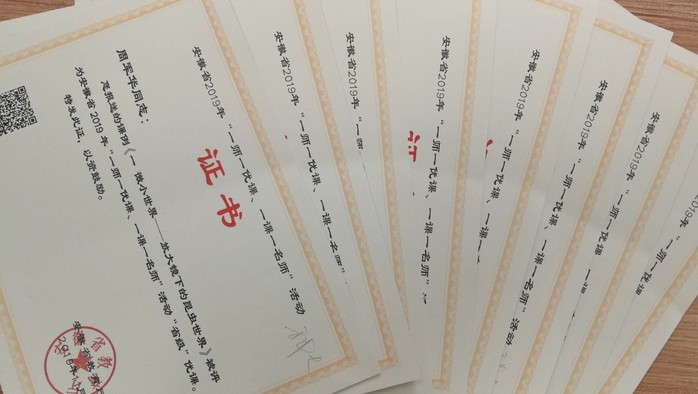 安徽省2019年“一师一优课、一课一名师”活动
证书
周军华同志：
您报送的课例《一 微小世界——放大镜下的昆虫世界》被评
为安徽省 2019 年“一师一优课、一课一名师”活动“省级”优课。
特发此证，以资鼓励。
安徽省教
安徽省2019年“一师一优课、一课一名师”
安徽省2019年“一师
安徽省2019年“一师一优课、一课一名师”
安徽省2019年“一师一优课、一课一
安徽省2019年“一师一优课、一课一名师”活动
安徽省2019年“一师一优课
2019年“一师一优课